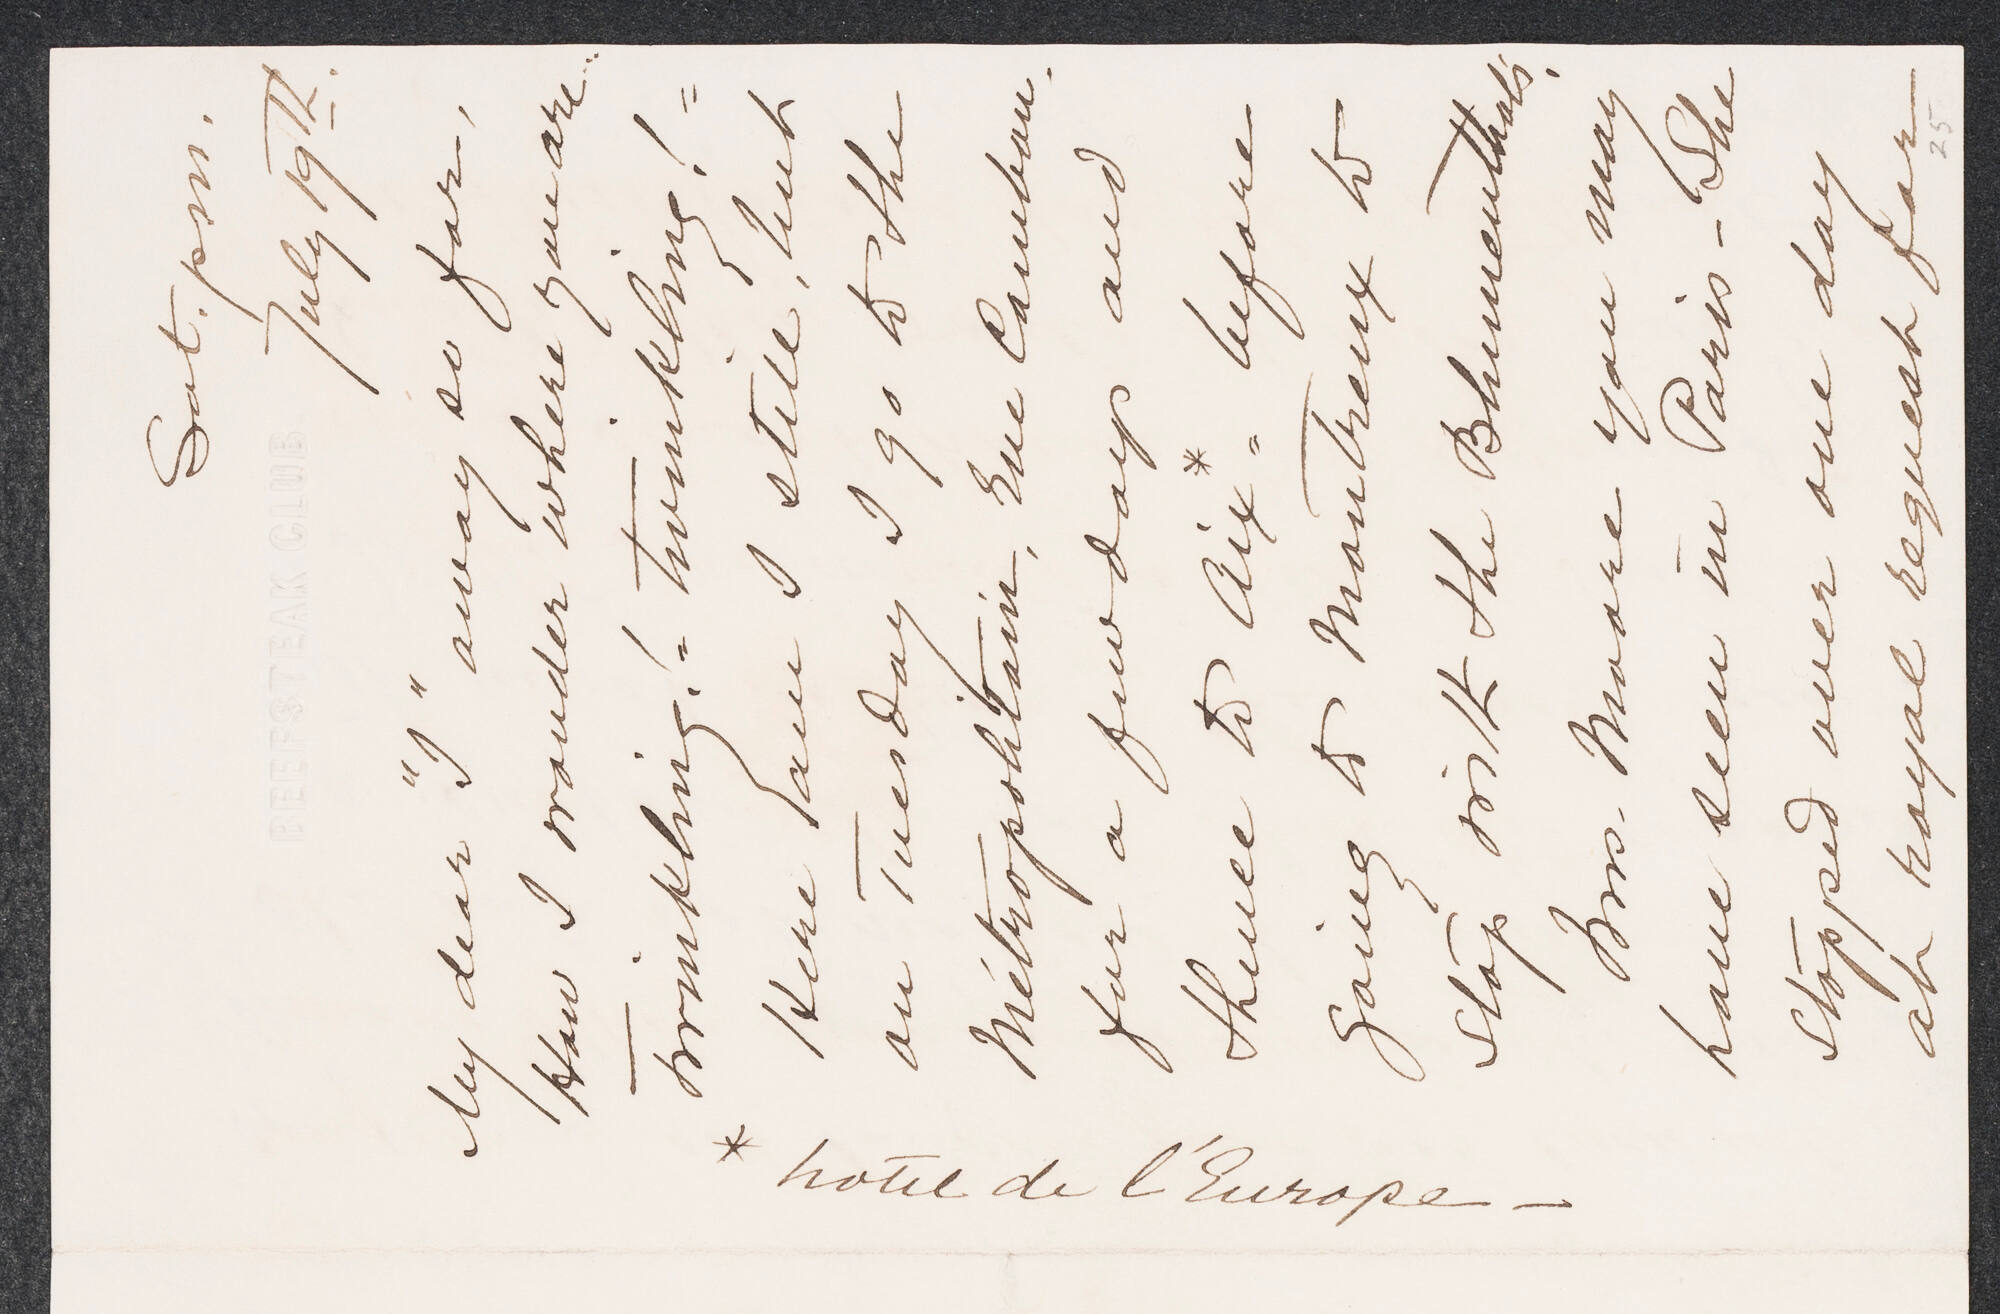 Sat. pm.
July 19th.
BEEFSTEAK CLUB
My dear "I" away so far,
How I wonder where you are..
Twinkling! = Twinkling! =
Here am I still, but
on Tuesday I go to the
Métropolitain, Rue Cambon.
for a few days and
thence to Aix* = before
going to Montreux to
stop with the Blumenthals.
Mrs. Moore you may
have seen in Paris - She
stopped over one day
at royal request for
* hotel de l'Europe -
25